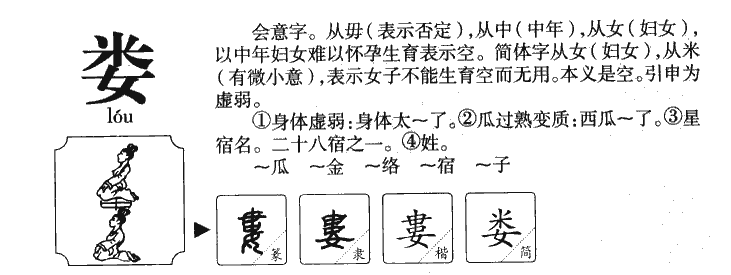 娄
lóu
会意字。从毋(表示否定),从中(中年),从女(妇女),
以中年妇女难以怀孕生育表示空。简体字从女(妇女),从米
(有微小意),表示女子不能生育空而无用。本义是空。引申为
虚弱。
①身体虚弱:身体太~了。②瓜过熟变质:西瓜~了。③星
宿名。二十八宿之一。④姓。
~瓜 ~金 ~络 ~宿 ~子
婁 篆
婁 隶
婁 楷
娄 简